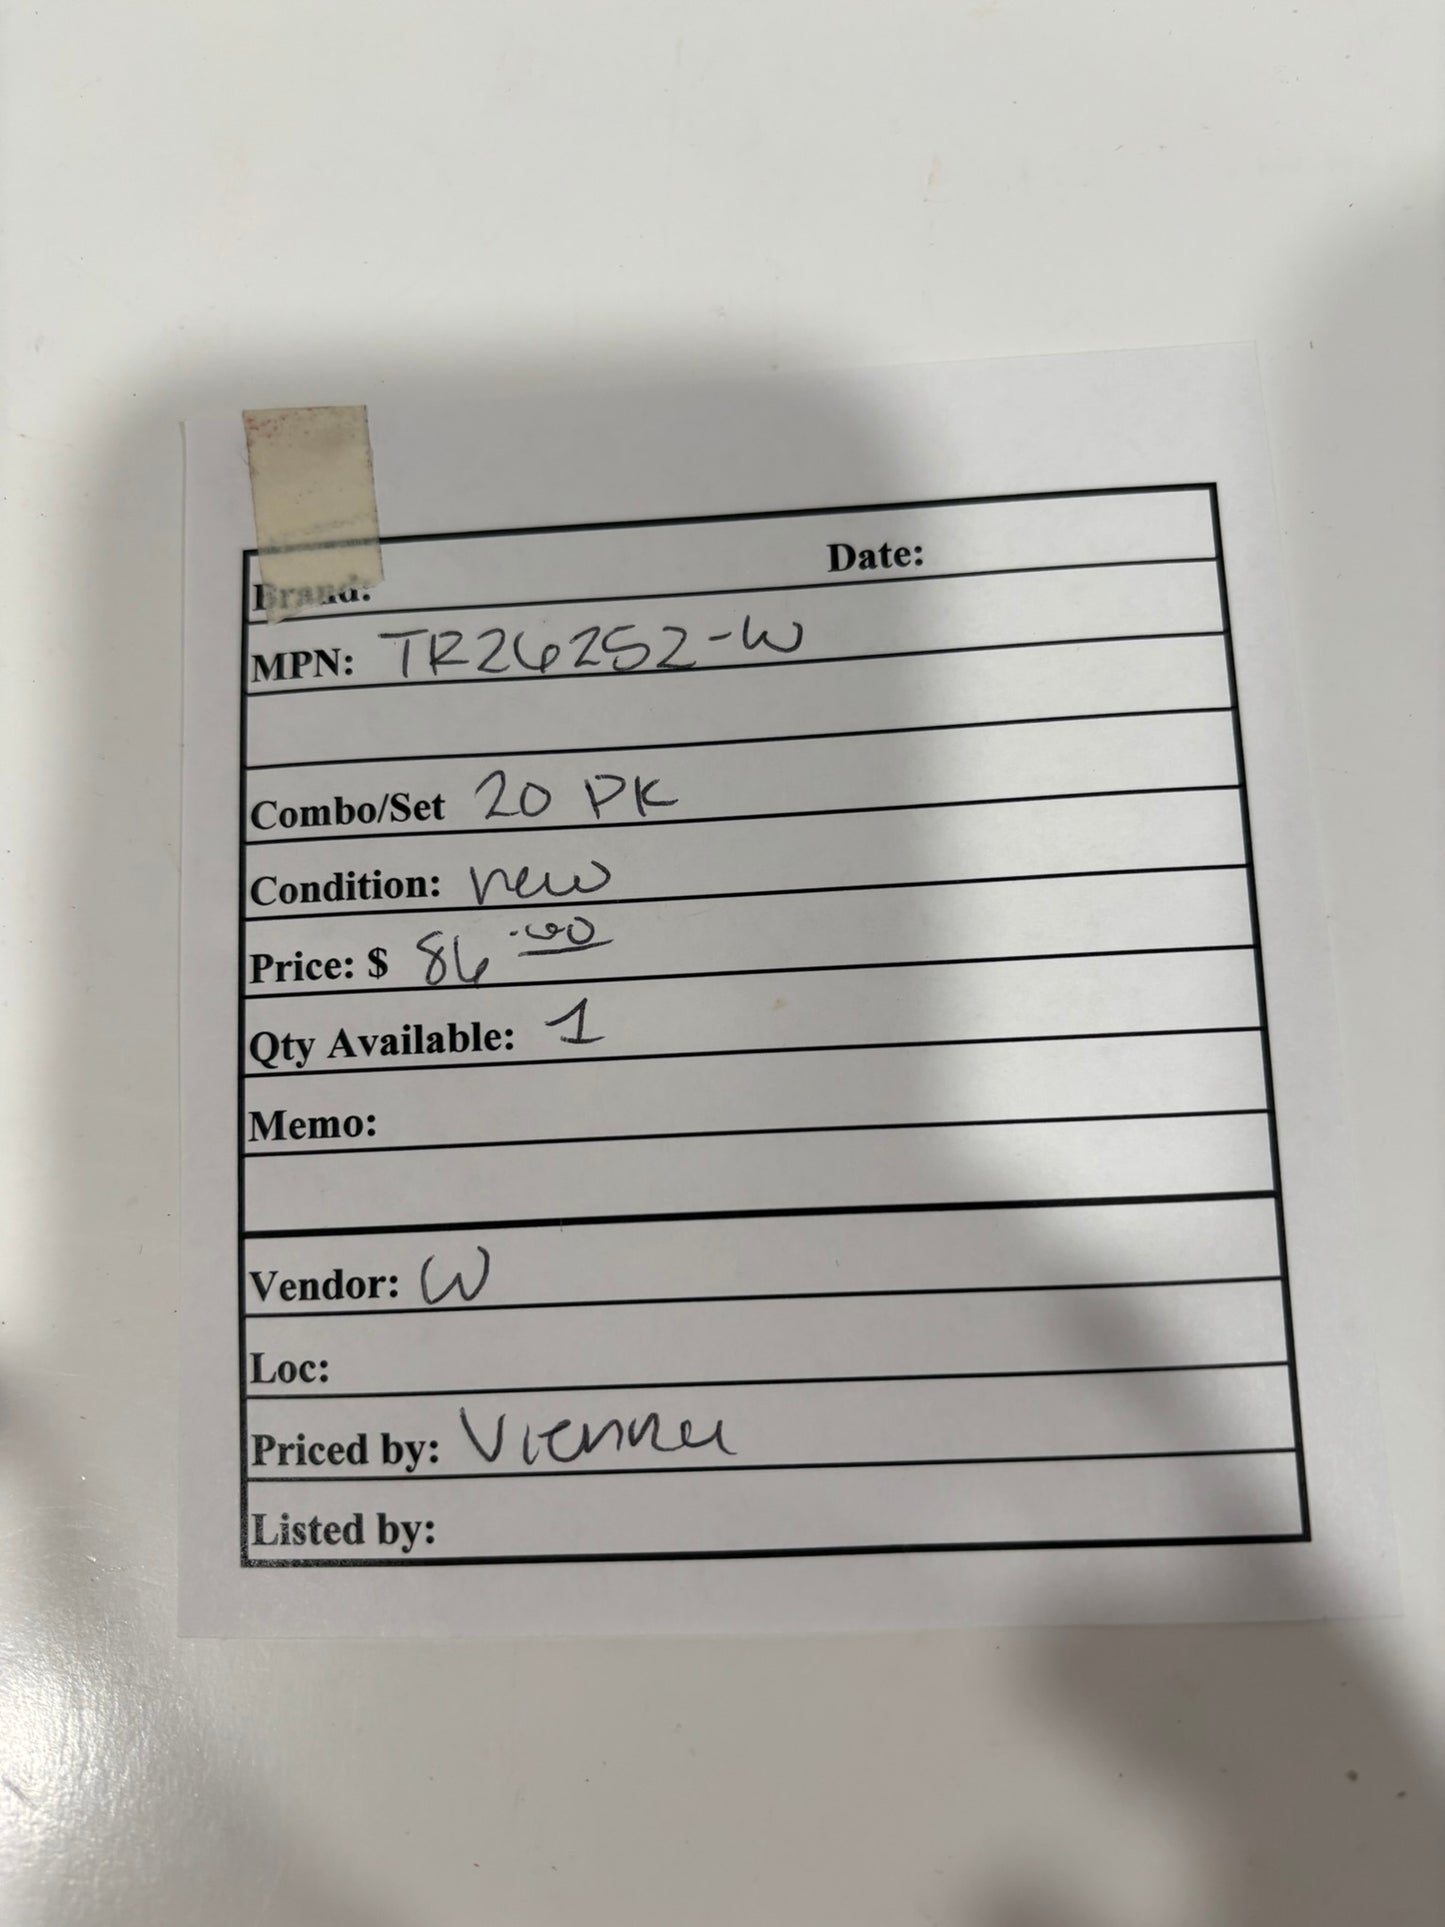 Brand: Date:
MPN: TR26252-W
Combo/Set 20 PK
Condition: new
Price: $ 86.00
Qty Available: 1
Memo:
Vendor: W
Loc:
Priced by:
Listed by: